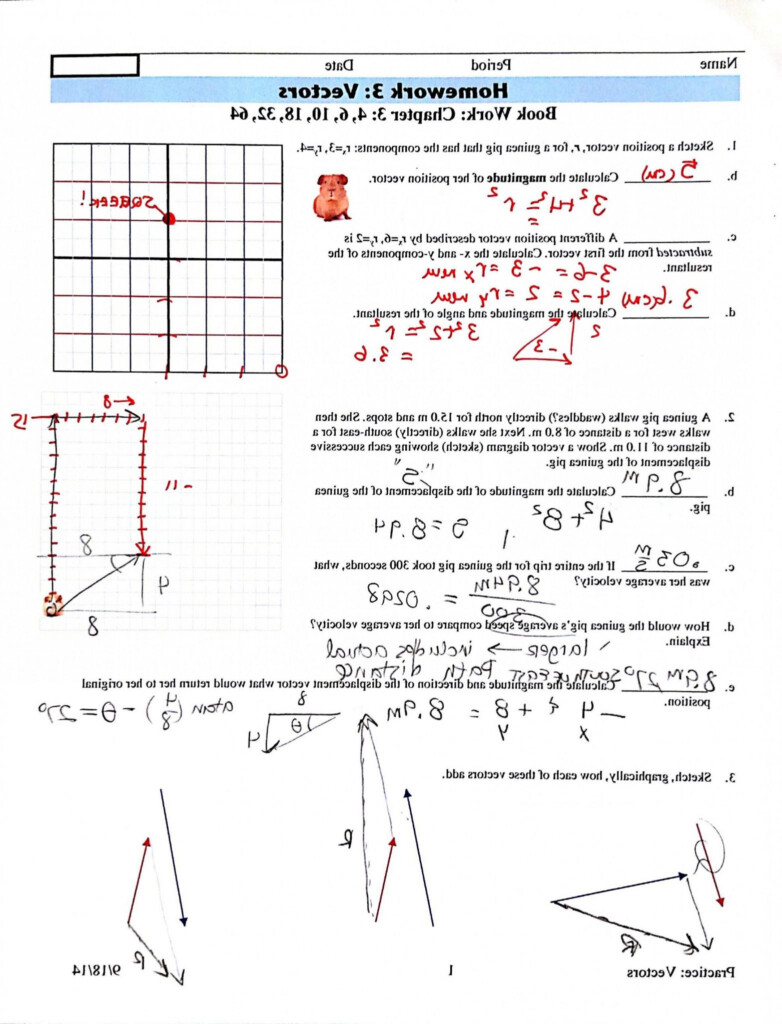 Name Period Date
Homework 3: Vectors
Book Work: Chapter 3: 4, 6, 10, 18, 32, 64
1. Sketch a position vector, r, for a guinea pig that has the components: rₓ=3, rᵧ=4.
b. 5 (cm) Calculate the magnitude of her position vector.
3² + 4² = r²
=
SQUEEK!
c. A different position vector described by rₓ=6, rᵧ=2 is
subtracted from the first vector. Calculate the x- and y-components of the
resultant.
3-6 = -3 = rx new
4-2 = 2 = ry new
d. 3.6 (cm) Calculate the magnitude and angle of the resultant.
3² + 2² = r²
= 3.6
2
-3
2. A guinea pig walks (waddles?) directly north for 15.0 m and stops. She then
walks west for a distance of 8.0 m. Next she walks (directly) south-east for a
distance of 11.0 m. Show a vector diagram (sketch) showing each successive
displacement of the guinea pig.
"S"
15
8
-11
8
4
8
b. 8.9 m Calculate the magnitude of the displacement of the guinea
pig.
4² + 8²
= 8.94
c. .03 m/s If the entire trip for the guinea pig took 300 seconds, what
was her average velocity?
8.94m / 300 = .0298
d. How would the guinea pig's average speed compare to her average velocity?
Explain.
larger → includes actual
path distance
e. 8.9m 27° southwest Calculate the magnitude and direction of the displacement vector what would return her to her original
position.
-4 + 8 = 8.9m
x y
8
θ
4
atan (4/8) - θ = 27°
3. Sketch, graphically, how each of these vectors add.
R
R
R
Practice: Vectors 1 9/18/14